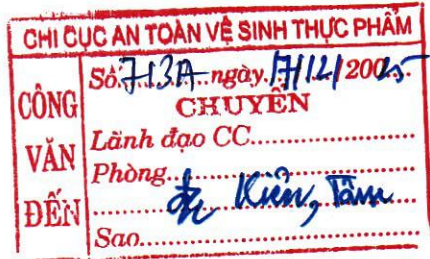 CHI CỤC AN TOÀN VỆ SINH THỰC PHẨM
CÔNG VĂN ĐẾN
Số: 713A ngày 17/12/2025
CHUYỂN
Lãnh đạo CC
Phòng
Kiên, Tâm
Sao